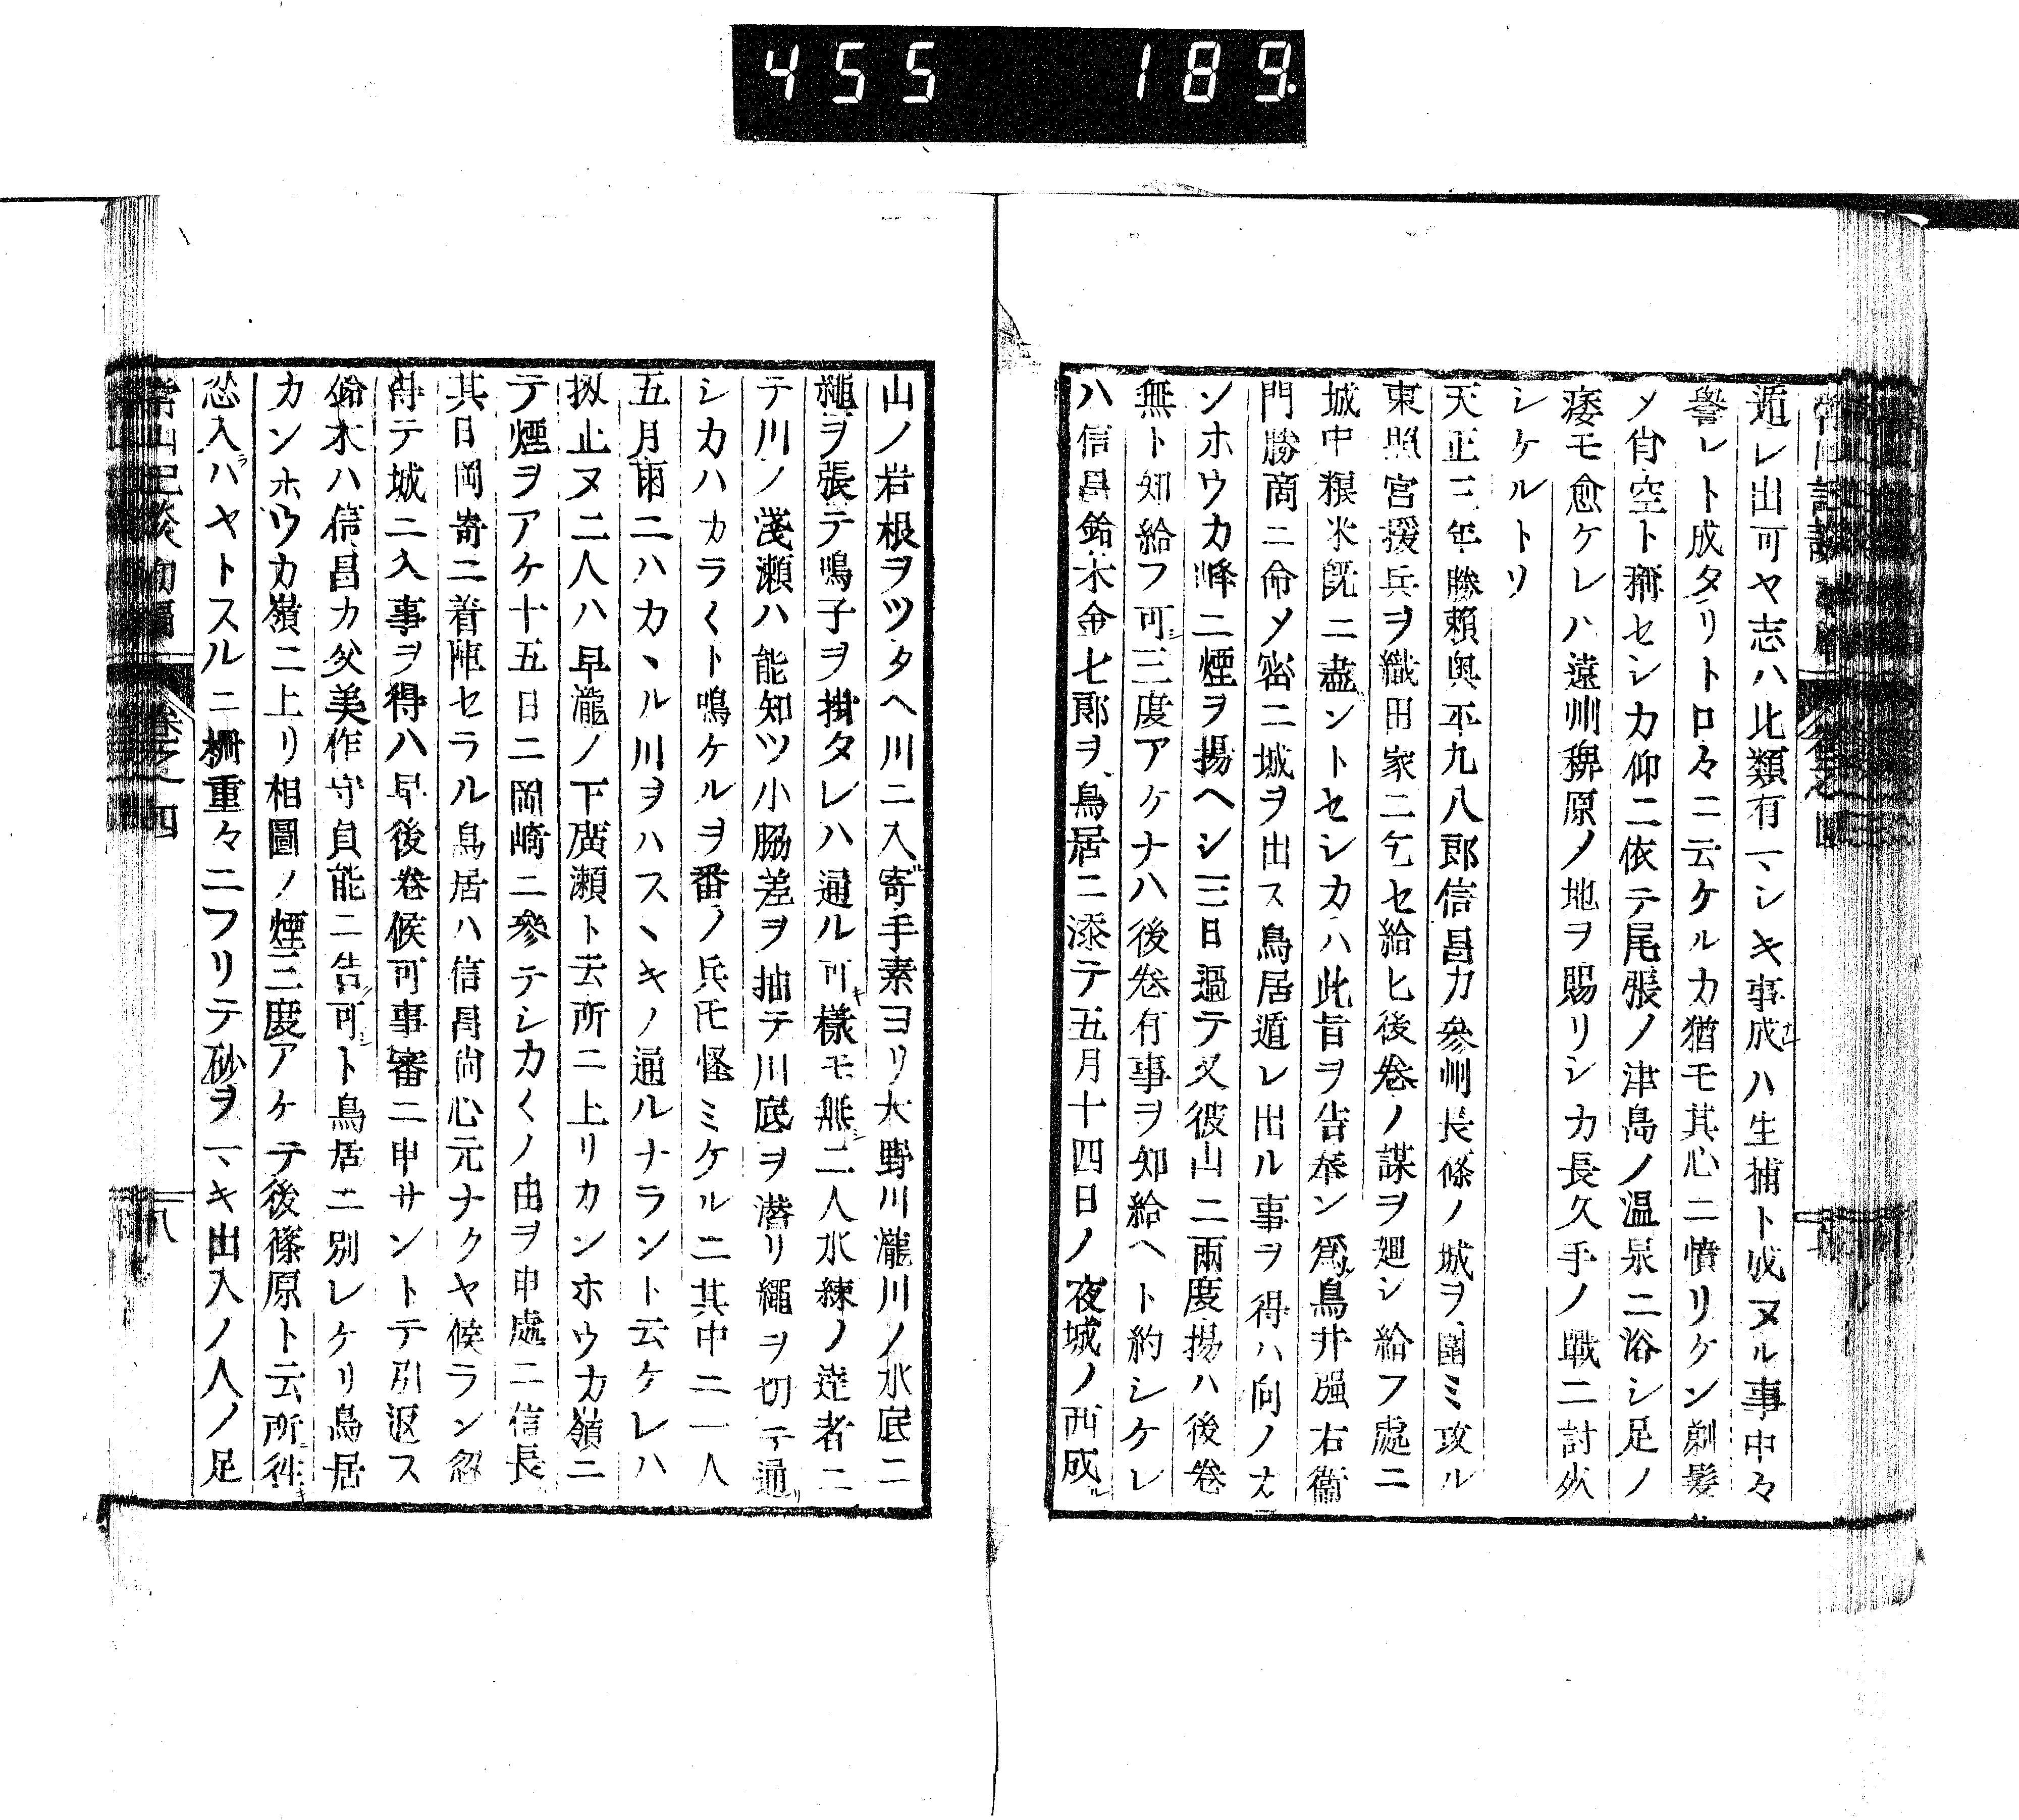 455 189
遁レ出可ヤ志ハ比類有マシキ事成ハ生捕ト成ヌル事中々
譽レト成タリト口々ニ云ケルカ猶モ其心ニ憤リケン剃髮
メ自空ト稱セシカ仰ニ依テ尾張ノ津島ノ温泉ニ浴シ足ノ
痿モ愈ケレハ遠州稗原ノ地ヲ賜リシカ長久手ノ戰ニ討死
シケルトリ
天正三年勝賴奥平九八郎信昌カ參州長條ノ城ヲ圍ミ攻ル
東照宮援兵ヲ織田家ニ乞セ給ヒ後卷ノ謀ヲ廻シ給フ處ニ
城中粮米旣ニ盡ントセシカハ此旨ヲ告奉ン爲鳥井强右衞
門勝商ニ命メ密ニ城ヲ出ス鳥居遁レ出ル事ヲ得ハ向ノカ
ンホウカ峰ニ煙ヲ揚ヘシ三日過テ又彼山ニ兩度揚ハ後卷
無ト知給フ可三度アケナハ後卷有事ヲ知給ヘト約シケレ
ハ信昌鈴木金七郎ヲ鳥居ニ添テ五月十四日ノ夜城ノ西成
山ノ岩根ヲツタヘ川ニ入寄手素ヨリ大野川瀧川ノ水底ニ
繩ヲ張テ鳴子ヲ掛タレハ通ル可樣モ無二人水練ノ達者ニ
テ川ノ淺瀬ハ能知ツ小脇差ヲ拔テ川底ヲ潜リ繩ヲ切テ通
シカハカラ〱ト鳴ケルヲ番ノ兵𪜈怪ミケルニ其中ニ一人
五月雨ニハカヽル川ヲハスヽキノ通ルナラント云ケレハ
扨止ヌ二人ハ早瀧ノ下廣瀬ト云所ニ上リカンホウカ嶺ニ
テ煙ヲアケ十五日ニ岡崎ニ參テシカ〱ノ由ヲ申處ニ信長
其日岡嵜ニ着陣セラル鳥居ハ信昌尚心元ナクヤ候ラン忽
得テ城ニ入事ヲ得ハ早後卷候可事審ニ申サントテ引返ス
鈴木ハ信昌カ父美作守貞能ニ告可ト鳥居ニ別レケリ鳥居
カンホウカ嶺ニ上リ相圖ノ煙三度アケテ後篠原ト云所ニ
忍入ハヤトスルニ柵重々ニフリテ砂ヲマキ出入ノ人ノ足
常山紀談初編 卷之四 八